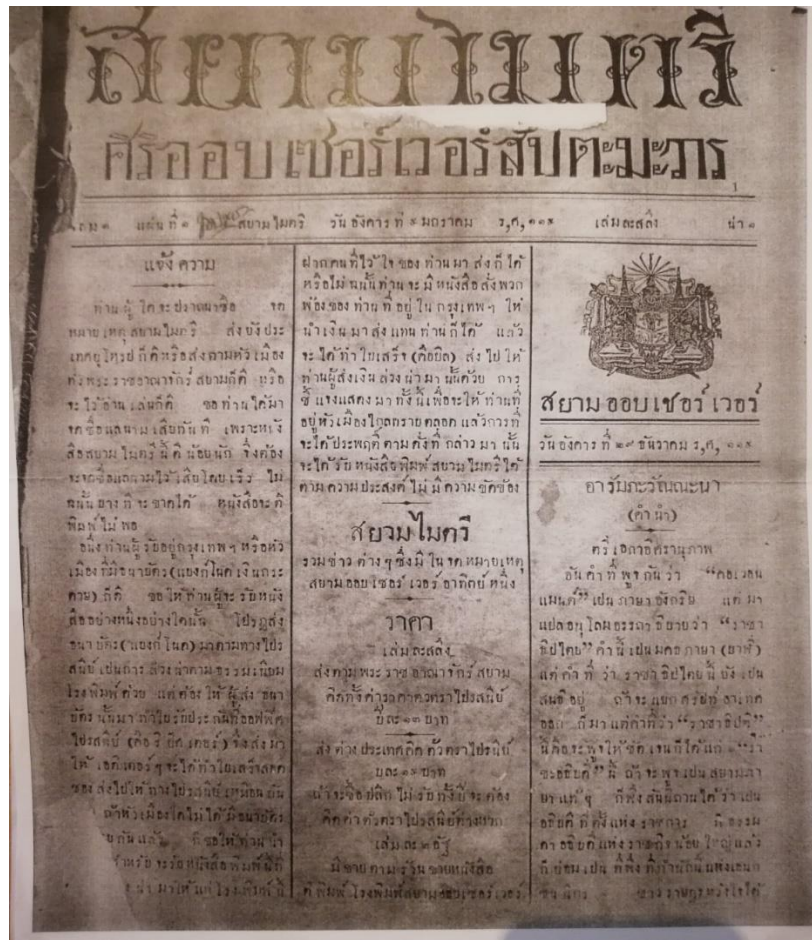 สยามไมตรี
ศิริออบเซอร์เวอร์สัปตะมะวาร
แผ่นที่ ๑ สยามไมตรี วันอังคาร ที่ ๙ มกราคม ร,ศ,๑๑๙ เล่มละสลึง น่า ๑
แจ้งความ
ท่านผู้ใดจะปราถนาซื้อ จด
หมายเหตุสยามไมตรี ส่งยังประ
เทศยุโรปก็ดีหรือส่งตามหัวเมือง
ทั่วพระราชอาณาจักร์สยามก็ดี หรือ
จะไว้อ่านเล่นก็ดี ขอท่านได้มา
จดชื่อลงนามเสียทันที เพราะหนัง
สือสยามไมตรีนี้ตีน้อยนัก จึ่งต้อง
จะจดชื่อลงนามไว้เสียโดยเร็ว ไม่
ฉนั้นบางทีจะขาดได้ หนังสือจะตี
พิมพ์ไม่พอ
อนึ่งท่านผู้รับอยู่กรุงเทพฯหรือหัว
เมืองที่มีธนาบัตร(แบงก์โนตเงินกระ
ดาษ)ก็ดี ขอให้ท่านผู้จะรับหนัง
สืออย่างหนึ่งอย่างใดนั้น โปรดส่ง
ธนาบัตร(แบงก์โนต)มาตามทางไปร
สนีย์เปนการล่วงน่าตามธรรมเนียม
โรงพิมพ์ด้วย แต่ต้องให้ผู้ส่งธนา
บัตรนั้นมาทำใบรับประกันที่ออฟฟิศ
ไปรสนีย์ (คือรียิศเตอร์) จึ่งส่งมา
ให้เอดิเตอร์ๆจะได้ทำใบเสร็จสอด
ซองส่งไปให้ทางไปรสนีย์เหมือนกัน
ถ้าหัวเมืองใดไม่ได้มีธนาบัตร
กันแล้ว ก็ขอให้ท่านนำ
สำหรับจะรับหนังสือพิมพ์นี้ที่
นำมาให้แก่โรงพิมพ์นี้
ฝากคนที่ไว้ใจของท่านมาส่งก็ได้
หรือไม่ฉนั้นท่านจะมีหนังสือสั่งพวก
พ้องของท่านที่อยู่ในกรุงเทพฯ ให้
นำเงินมาส่งแทนท่านก็ได้ แล้ว
จะได้ทำใบเสร็จ(คือบิล) ส่งไปให้
ท่านผู้ส่งเงินล่วงน่ามานั้นด้วย การ
ชี้แจงแสดงมาทั้งนี้เพื่อจะให้ท่านที่
อยู่หัวเมืองไกลทราบตลอด แล้วการที่
จะได้ประพฤติตามดังที่กล่าวมานั้น
จะได้รับหนังสือพิมพ์สยามไมตรีได้
ตามความประสงค์ไม่มีความขัดข้อง
สยามไมตรี
รวมข่าวต่างๆซึ่งมีในจดหมายเหตุ
สยามออบเซอร์เวอร์อาทิตย์หนึ่ง
ราคา
เล่มละสลึง
ส่งตามพระราชอาณาจักร์สยาม
คิดทั้งค่ารถค่าตวตราไปรสนีย์
ปีละ ๑๓ บาท
ส่งต่างประเทศคิดตัวตราไปรสนีย์
ปีละ ๑๙ บาท
ถ้าจะซื้อปลีกไม่รับทั้งปีจะต้อง
คิดค่าตัวตราไปรสนีย์ต่างหาก
เล่มละ ๒ อัฐ
มีขายตามร้านขายหนังสือ
ตีพิมพ์โรงพิมพ์สยามออบเซอร์เวอร์
สยามออบเซอร์เวอร์
วันอังคาร ที่ ๒๙ ธันวาคม ร,ศ, ๑๑๙
อารัมภะวัณณะนา
(คำนำ)
ตรีเอกาธิศรานุภาพ
อันคำที่พูดกันว่า “คอเวอน
แมนต์” เปนภาษาอังกฤษ แต่มา
แปลอนุโลมอรรถาธิบายว่า “ราชา
ธิปไตย” คำนี้เปนมคธภาษา (บาฬี)
แต่คำที่ว่าราชาธิปไตยนี้ยังเปน
สนธิอยู่ ถ้าจะแยกศรัพท์อาเทศ
ออก ก็มาแต่คำที่ว่า “ราชาธิปติ”
นี้คือจะพูดให้ชัดเจนก็ได้แก่ “รา
ชะอธิบดี” นี้ ถ้าจะพูดเปนสยามภา
ษาแท้ๆ ก็พึงสันนิถานได้ว่าเปน
อธิบดีที่ตั้งแห่งราชการ
ดาอธิบดีแห่งราชกิจน้อยใหญ่แล้ว
ก็ย่อมเปน